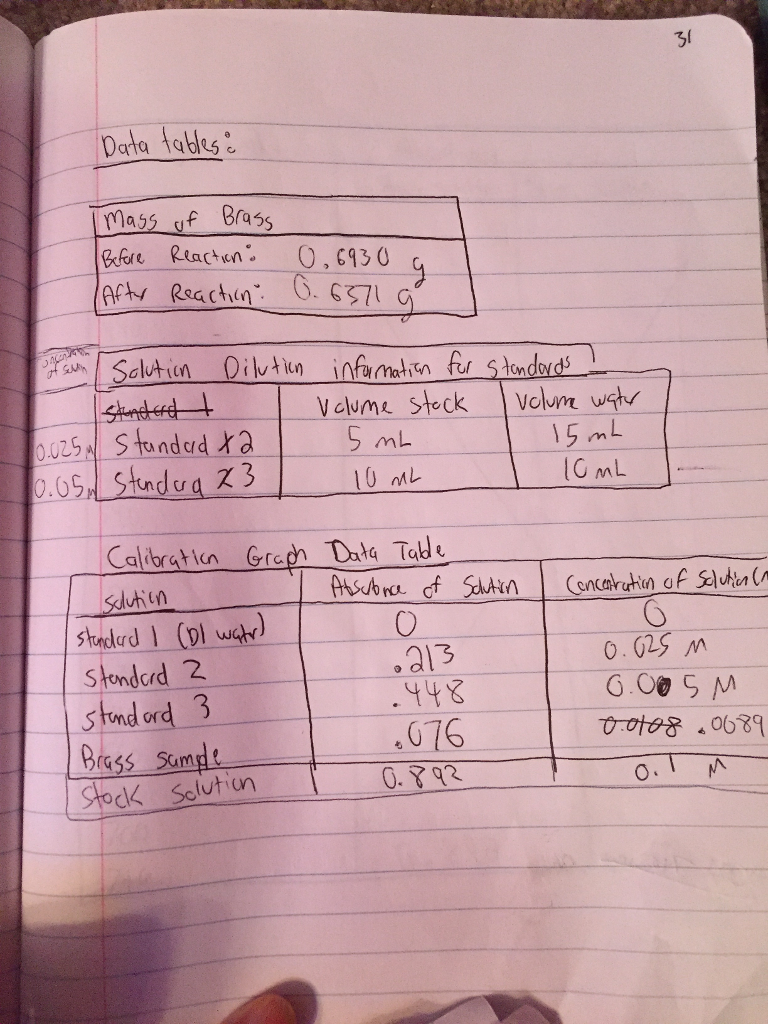 31
Data tables:
Mass of Brass
Before Reaction: 0.6930 g
After Reaction: 0.6371 g
Solution Dilution information for standards
Standard 1 Volume stock Volume water
0.025 M Standard 2 5 mL 15 mL
0.05 M Standard 3 10 mL 10 mL
Calibration Graph Data Table
Solution Absorbance of Solution Concentration of Solution (
Standard 1 (DI water) 0 0
Standard 2 .213 0.025 M
Standard 3 .448 0.05 M
Brass sample .076 0.0108 .0089
Stock Solution 0.892 0.1 M